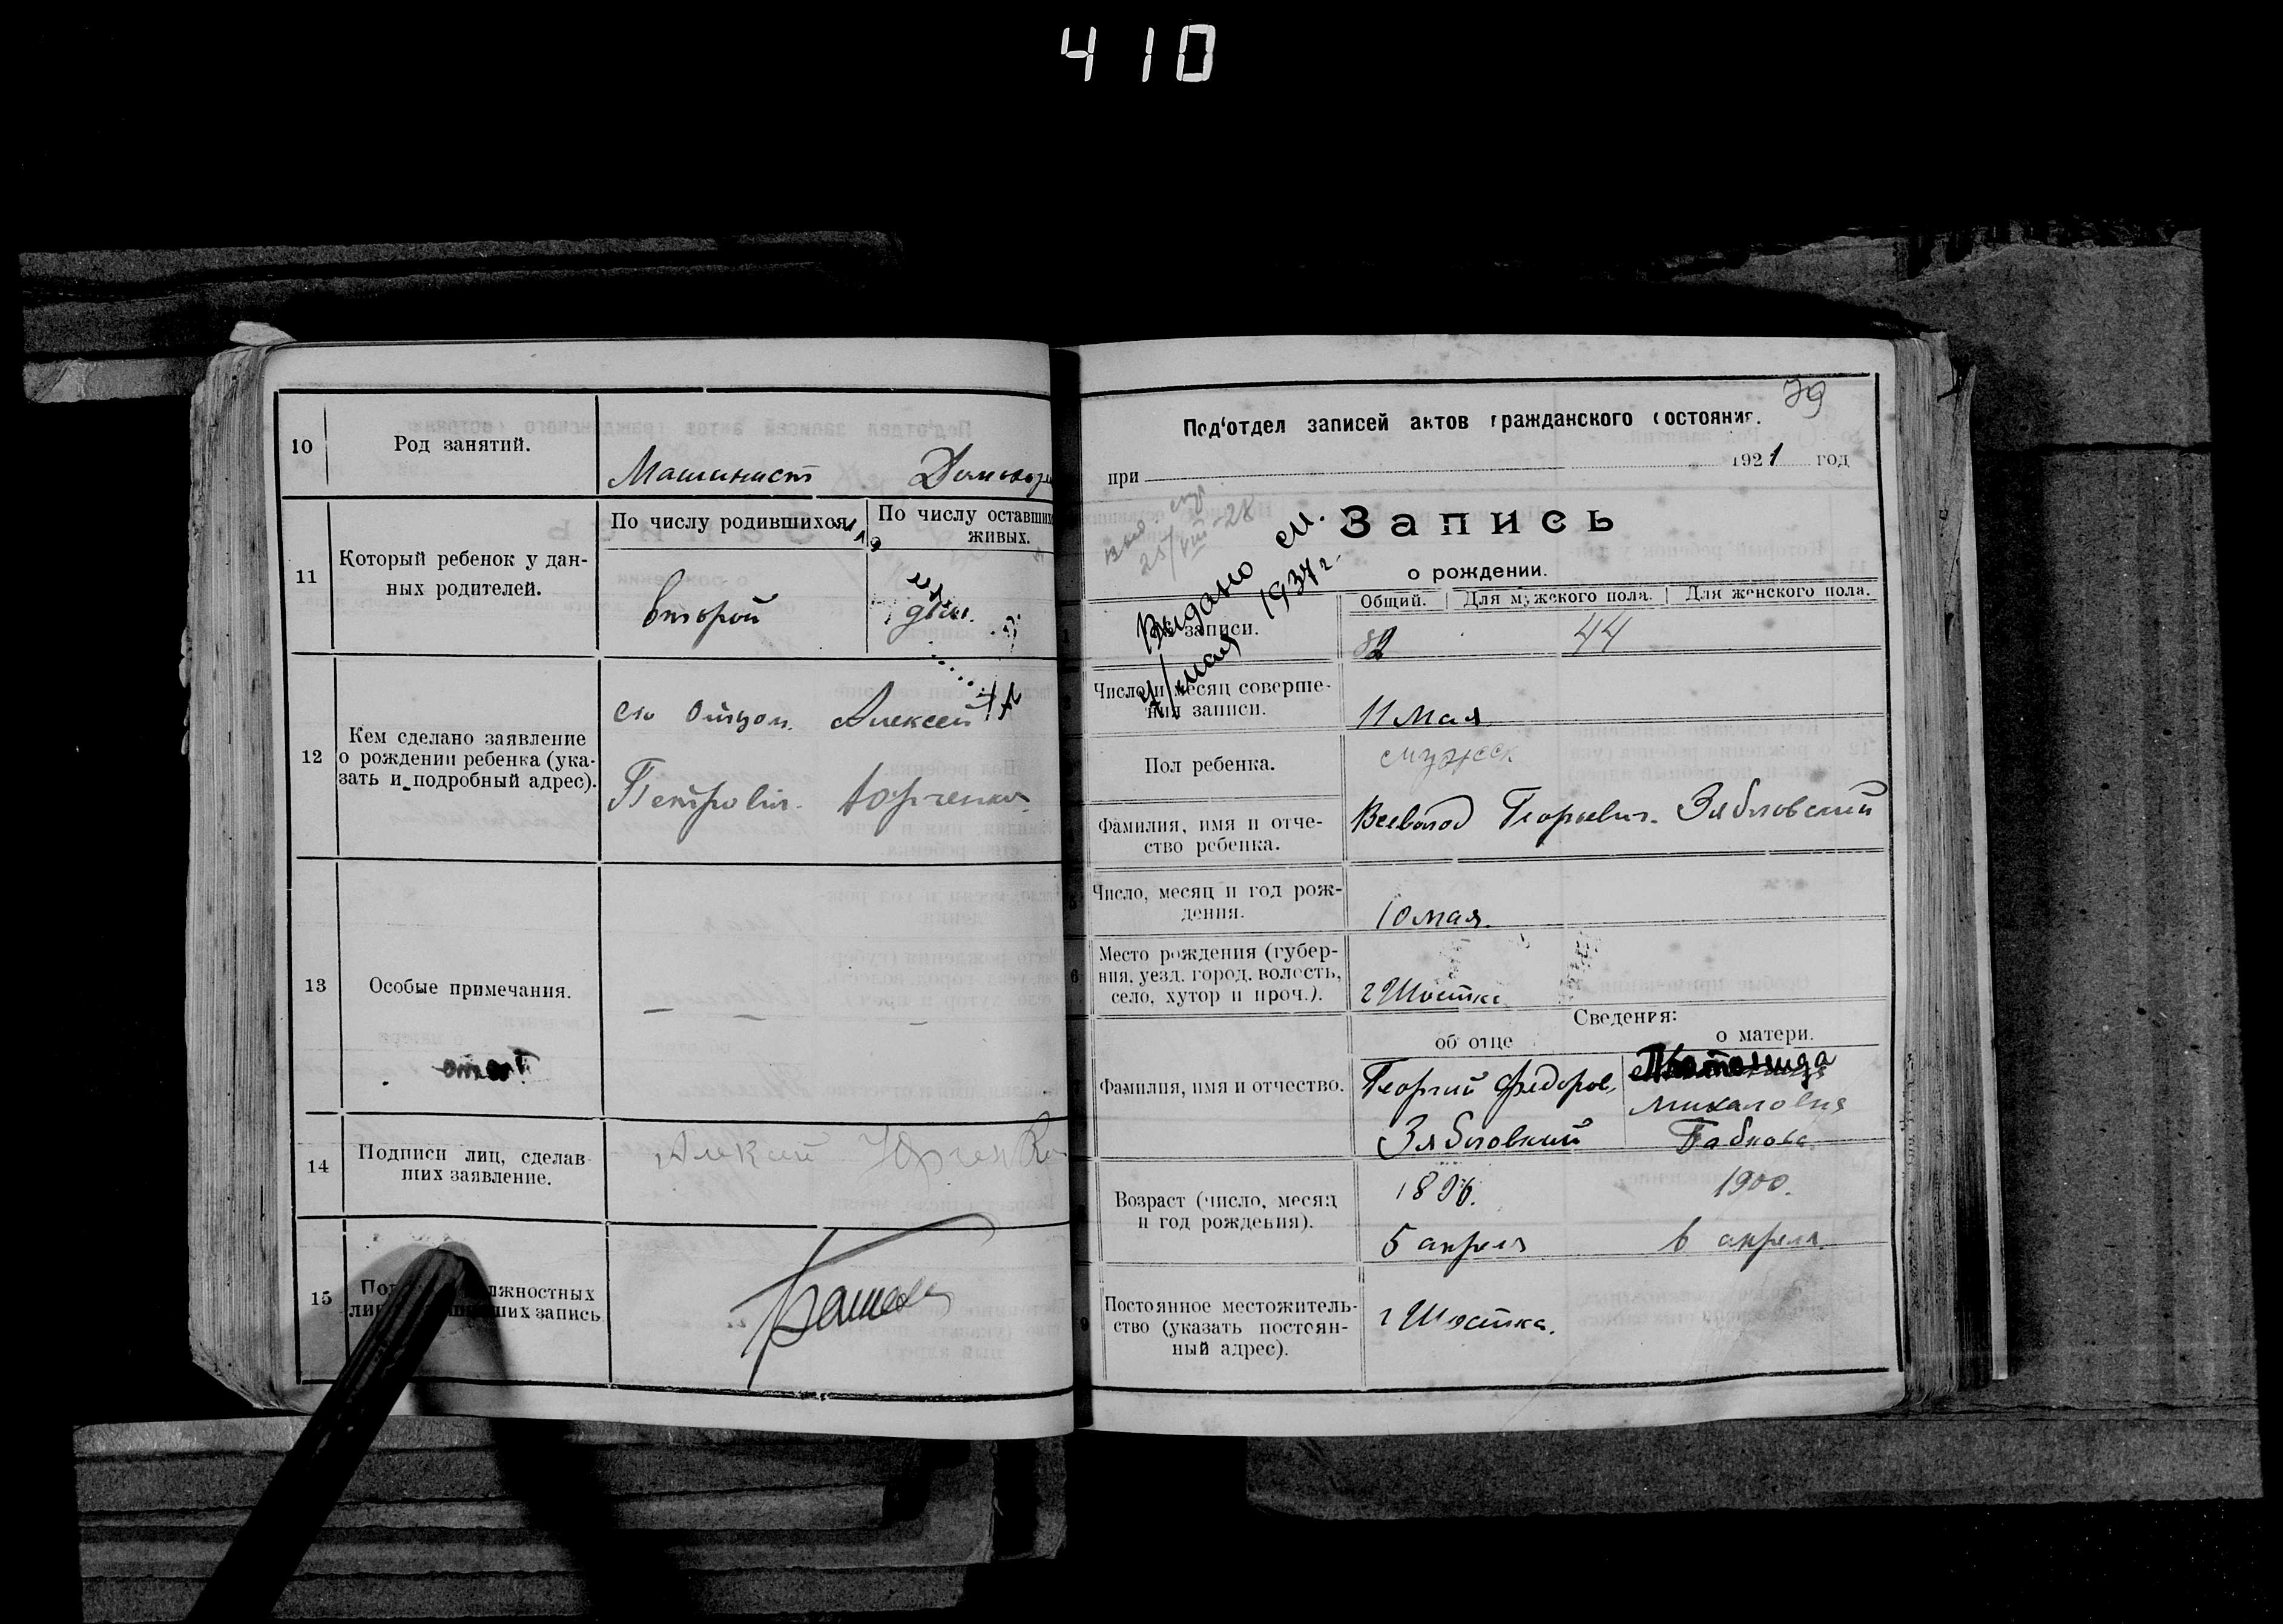 410
10 Род занятий. Машинист
11 Который ребенок у дан-
ных родителей.
По числу родившихся
По числу оставших
живых.
второй
12 Кем сделано заявление
о рождении ребенка (ука-
зать и подробный адрес).
отцом Алексей
Петрович Юрченко
13 Особые примечания.
14 Подписи лиц, сделав-
ших заявление.
Алексей Юрченко
15
лжностных
ших запись
79
Под'отдел записей актов гражданского состояния.
при 1921 год
25/VIII-28
Выдано
1937 г.
мая
Запись
о рождении.
записи.
Общий. Для мужского пола. Для женского пола.
82 44
Число и месяц соверше-
ния записи.
11 мая
Пол ребенка.
мужеск
Фамилия, имя и отче-
ство ребенка.
Всеволод Георгиевич Зябловский
Число, месяц и год рож-
дения.
10 мая.
6 Место рождения (губер-
ния, уезд, город, волость,
село, хутор и проч.).
г Шостка
Сведения:
об отце о матери.
Фамилия, имя и отчество.
Георгий Федоров
Зябловский
Михаловна
Бабкова
Возраст (число, месяц
и год рождения).
1896. 1900.
5 апреля 6 апреля
9 Постоянное местожитель-
ство (указать постоян-
ный адрес).
г Шостка.